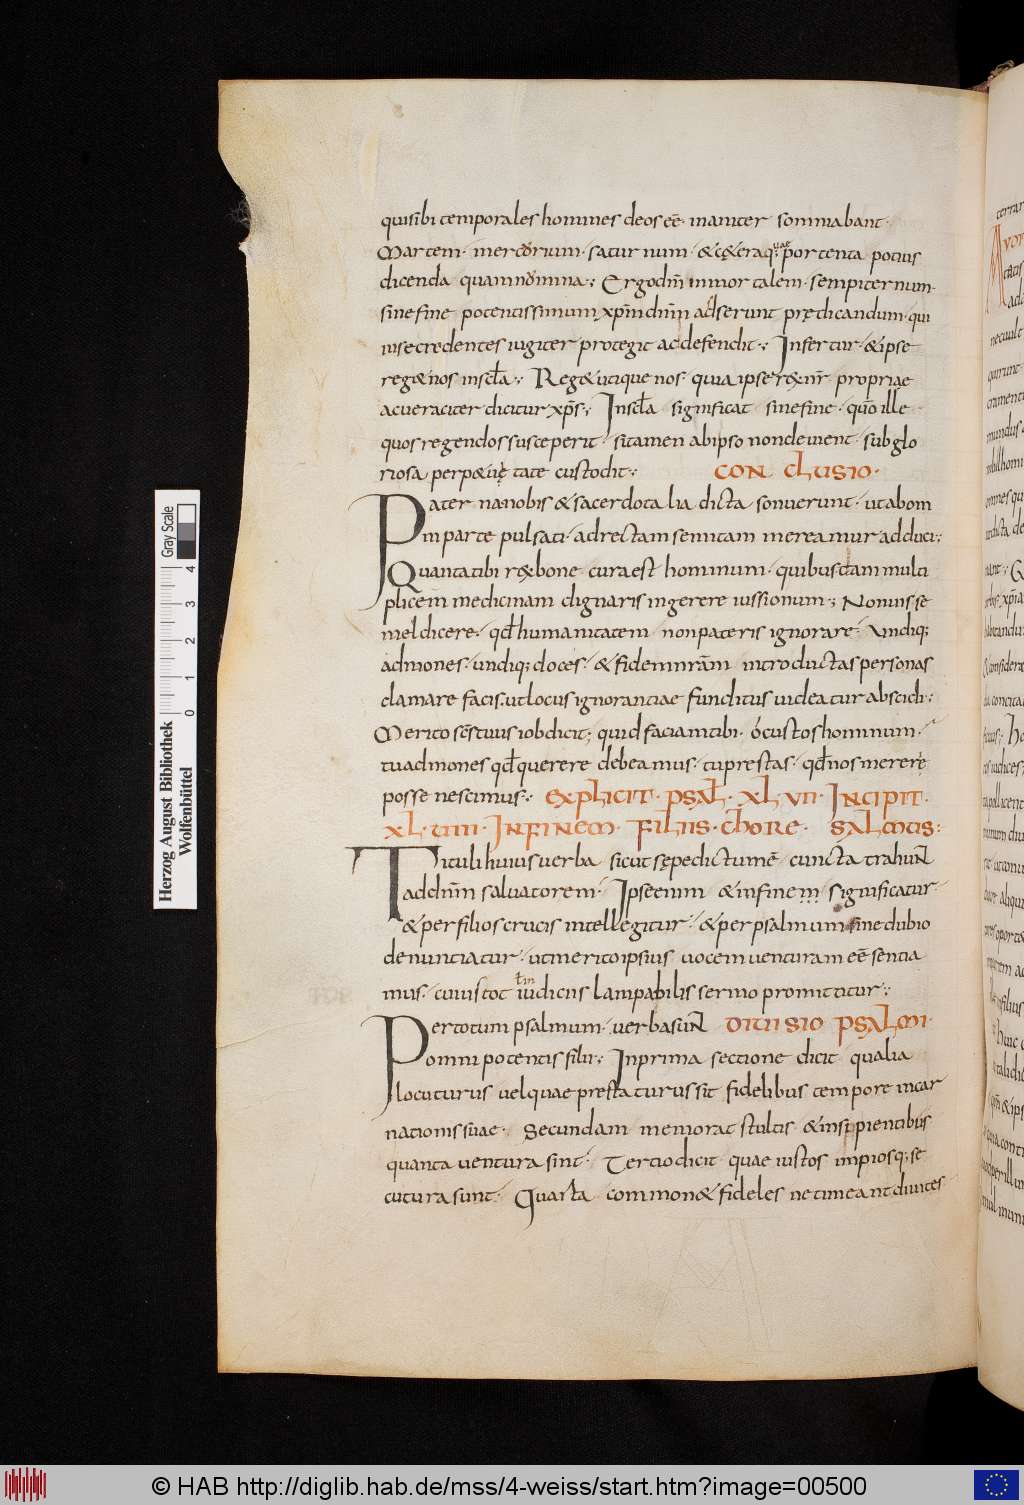 quisibi temporales homines deos eē· inaniter somniabant·
Martem· mercorium· saturnum· &c&eraq; portenta potius
dicenda quam nomina·: Ergo dn̄m inmortalem· sempiternum·
sine fine potentissimum xp̄m dn̄m adserunt prędicandum· qui
in se credentes iugiter protegit ac defendit·: Infertur· & ipse
reg& nos in scl̄a·: Reg& utique nos· quia ipse rex nr̄ propriae
ac ueraciter dicitur xp̄s; In scl̄a significat sine fine· qm̄o ille
quos regendos susceperit· si tamen ab ipso non deuient· sub glo
riosa perp&uę tate custodit·: CON CLUSIO·
Pater na nobis & sacerdotalia dicta sonuerunt· ut ab om
ni parte pulsati· ad rectam semitam mereamur adduci·:
Quanta tibi rex bone cura est hominum· quibusdam multi
plicem medicinam dignaris ingerere iussionum·; Non uis se
mel dicere· qd̄ humanitatem non pateris ignorare· Undiq;
admones· undiq; doces· & fidem nr̄am introductas personas
clamare facis· ut locus ignorantiae funditus uideatur abscidi·:
Merito sc̄s tuus iob dicit; quid faciam tibi· o custos hominum·
tu admones qd̄ querere debeamus· tu prestas· qd̄ nos merere
posse nescimus·: EXPLICIT· PSAL̄· XL VII· INCIPIT·
XL· VIII· IN FINEM· FILIIS· CHORE· SALMUS:
Tituli huius uerba sicut sępe dictum ē cuncta trahunt
ad dn̄m saluatorem· Ipse enim & in finem significatur·
& per filios crucis intellegitur· & per psalmum sine dubio
denunciatur· ut merito ipsius uocem uenturam eē sentia
mus· cui istot iudiciis lampabilis sermo promittitur·:
Per totum psalmum· uerba sunt DIUISIO PSALMI·
omnipotentis filii·: In prima sectione dicit qualia
locuturus uel quae prestaturus sit fidelibus tempore incar
nationis suae· Secundam memorat stultis & insipientibus
quanta uentura sint· Tertio dicit quae iustos impiosq; se
cutura sunt· Quarta common& fideles ne timeant diuites
Gray Scale
0 1 2 3 4
Herzog August Bibliothek
Wolfenbüttel
© HAB http://diglib.hab.de/mss/4-weiss/start.htm?image=00500